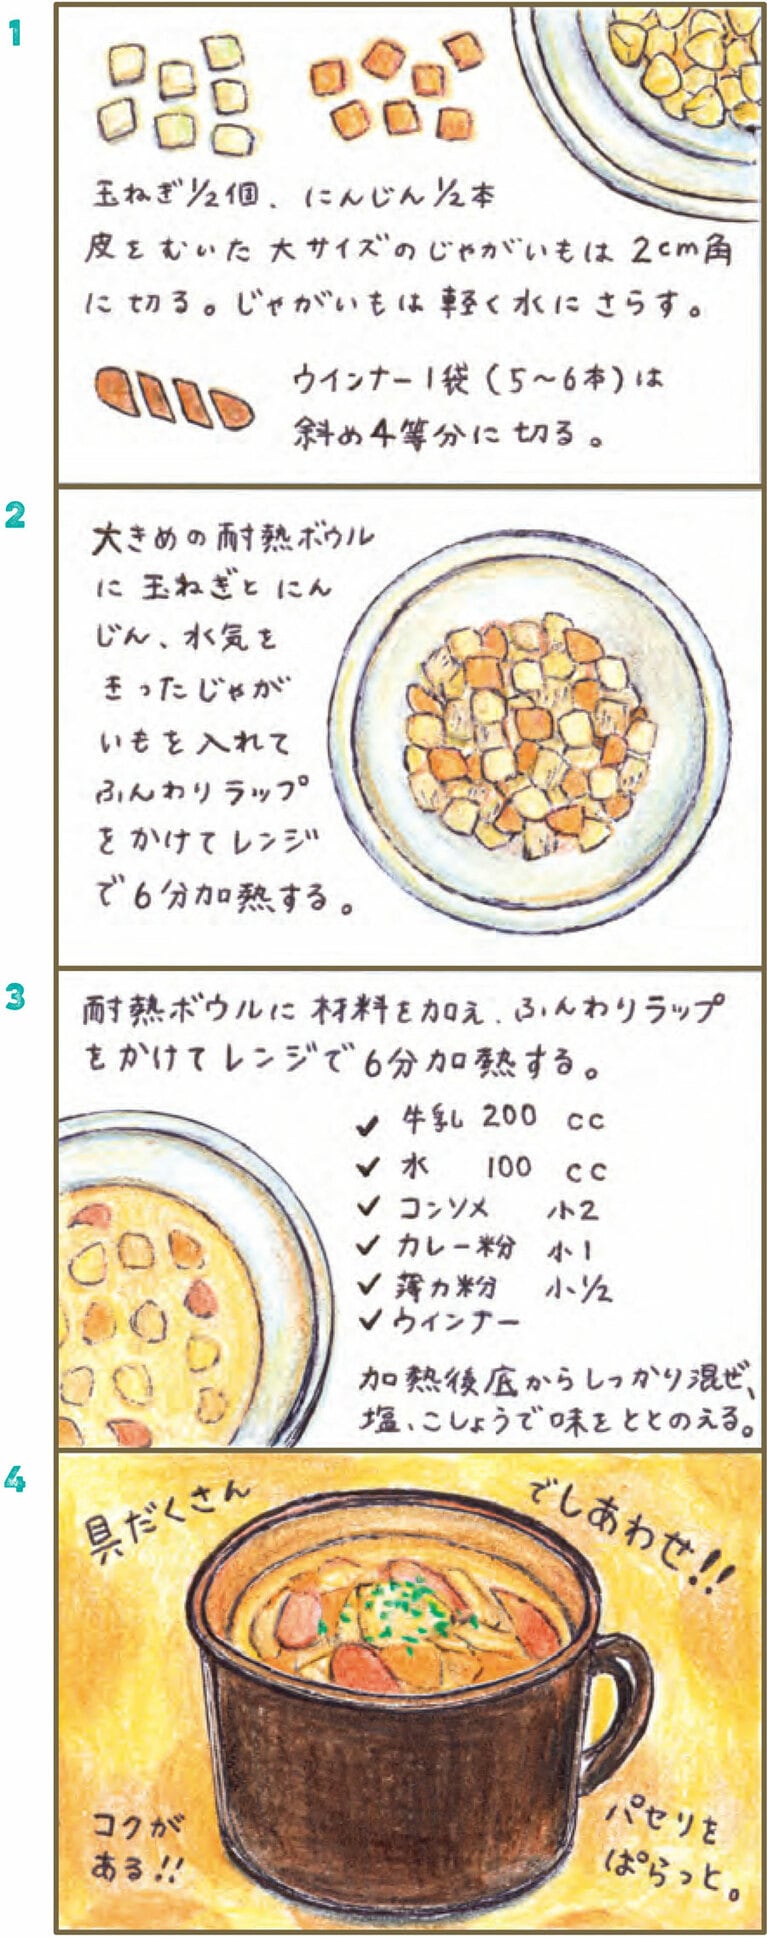 1
玉ねぎ1/2個、にんじん1/2本
皮をむいた大サイズのじゃがいもは2cm角
に切る。じゃがいもは軽く水にさらす。
ウインナー1袋(5〜6本)は
斜め4等分に切る。
2
大きめの耐熱ボウル
に玉ねぎとにん
じん、水気を
きったじゃが
いもを入れて
ふんわりラップ
をかけてレンジ
で6分加熱する。
3
耐熱ボウルに材料を加え、ふんわりラップ
をかけてレンジで6分加熱する。
✓ 牛乳 200 cc
✓ 水 100 cc
✓ コンソメ 小2
✓ カレー粉 小1
✓ 薄力粉 小1/2
✓ ウインナー
加熱後底からしっかり混ぜ、
塩、こしょうで味をととのえる。
4
具だくさん
でしあわせ!!
コクが
ある!!
パセリを
ぱらっと。